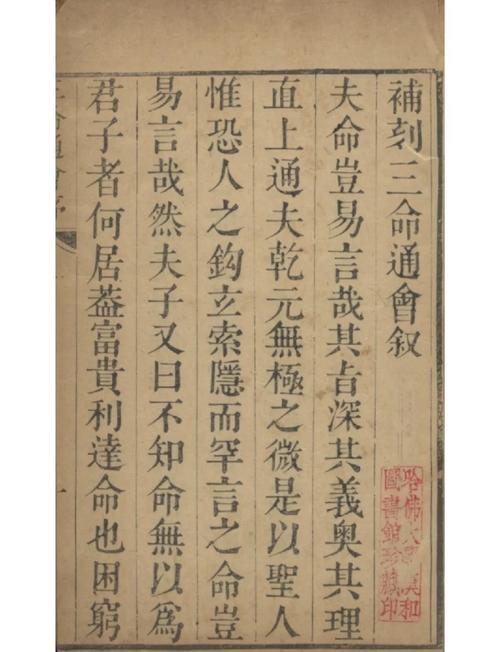 補刻三命通會叙
夫命豈易言哉其旨深其義奧其理
直上通夫乾元無極之微是以聖人
惟恐人之鈎玄索隱而罕言之命豈
易言哉然夫子又曰不知命無以爲
君子者何居葢富貴利達命也困窮
三命通會序
一
哈佛大學漢和
圖書館珍藏印